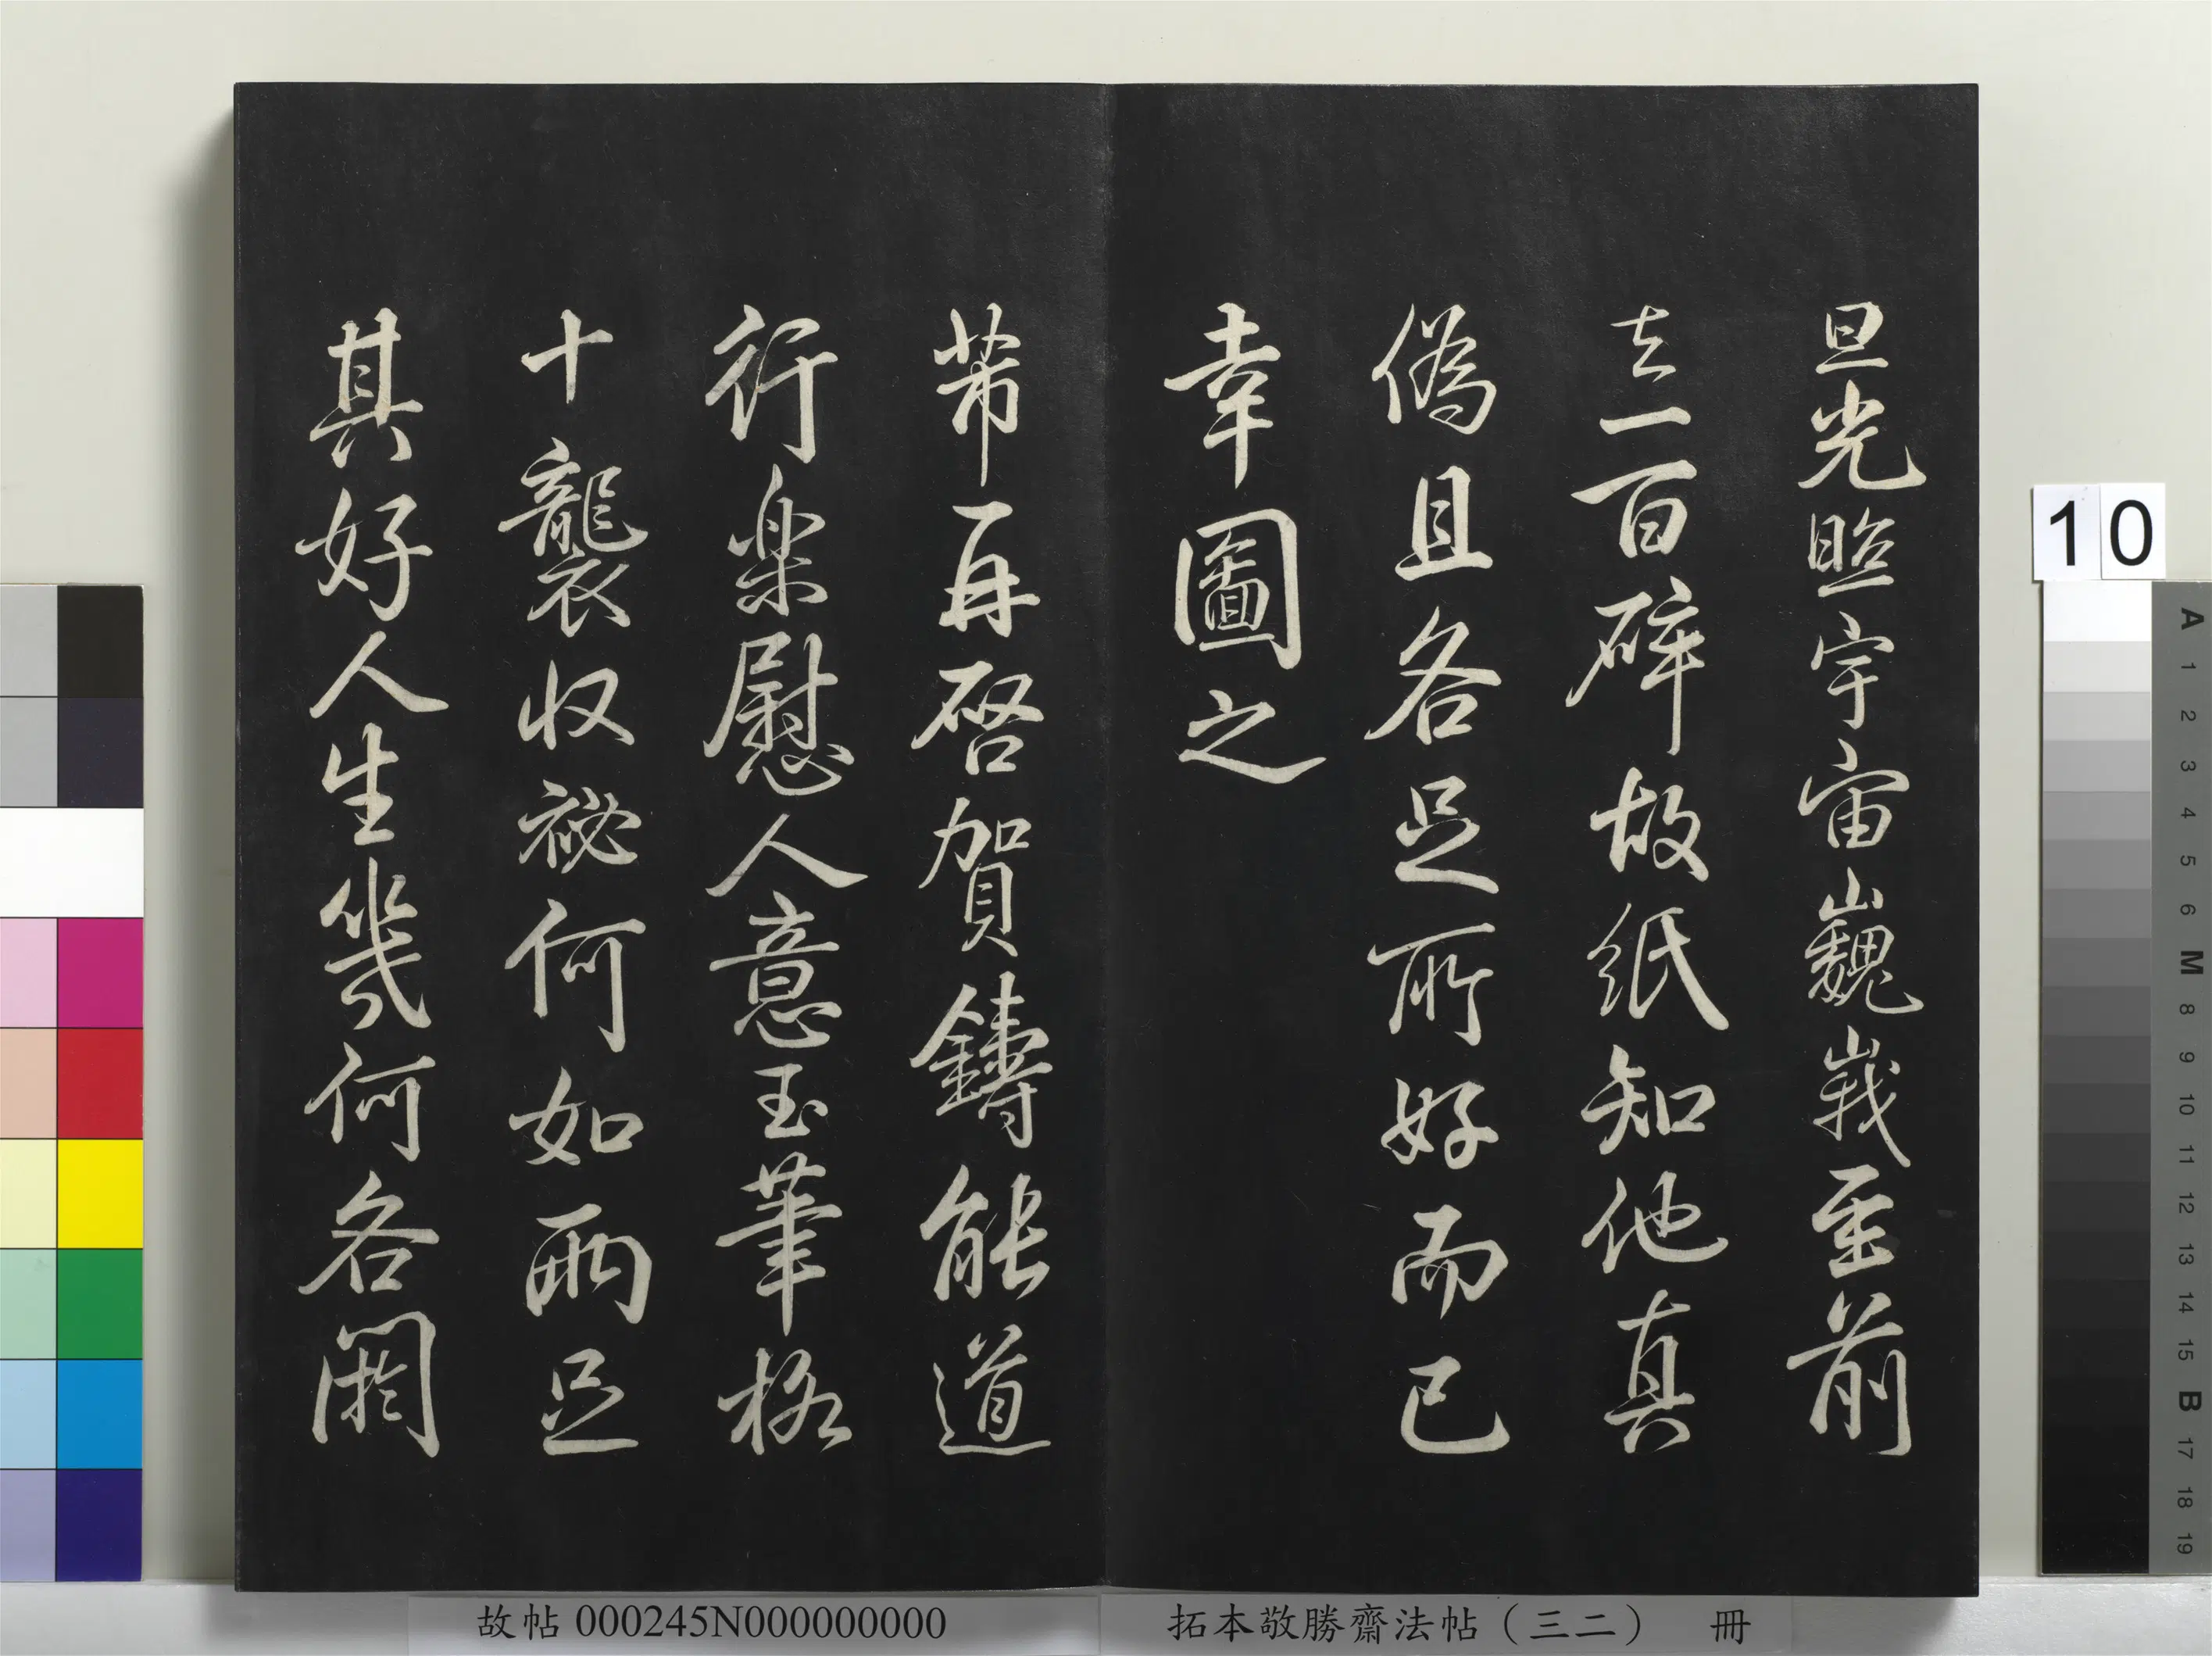 旦光照宇宙巍峩至前
去一百碎故紙知他真
偽且各足所好而已
幸圖之
芾再啓賀鑄能道
行樂慰人意玉筆格
十襲收祕何如兩足
其好人生幾何各閼
10
A 1 2 3 4 5 6 M 8 9 10 11 12 13 14 15 B 17 18 19
拓本敬勝齋法帖（三二） 冊
故帖 000245N000000000